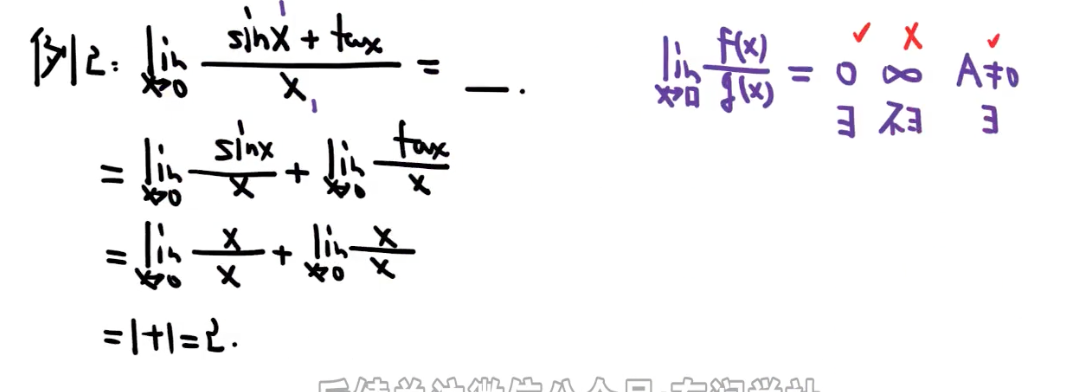 例2: lim x→0 (sinx + tanx)/x = __.
= lim x→0 sinx/x + lim x→0 tanx/x
= lim x→0 x/x + lim x→0 x/x
=1+1=2.
✓ × ✓
lim x→□ f(x)/g(x) = 0 ∞ A≠0
∃ 不∃ ∃